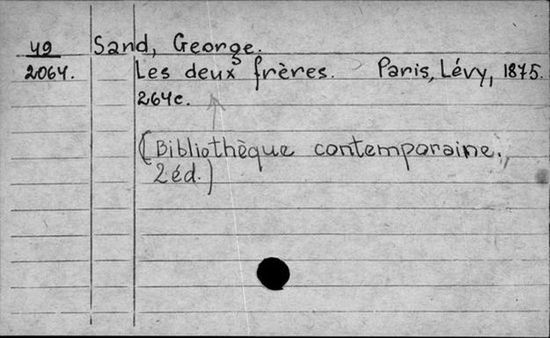 49 Sand, George.
2064. Les deux frères. Paris, Lévy, 1875.
264c.
(Bibliothèque contemporaine.,
2éd.)